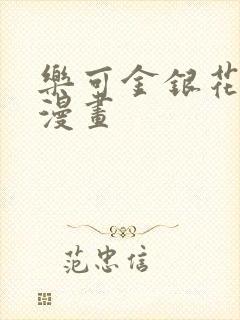 樂可金銀花
漫畫
范忠信